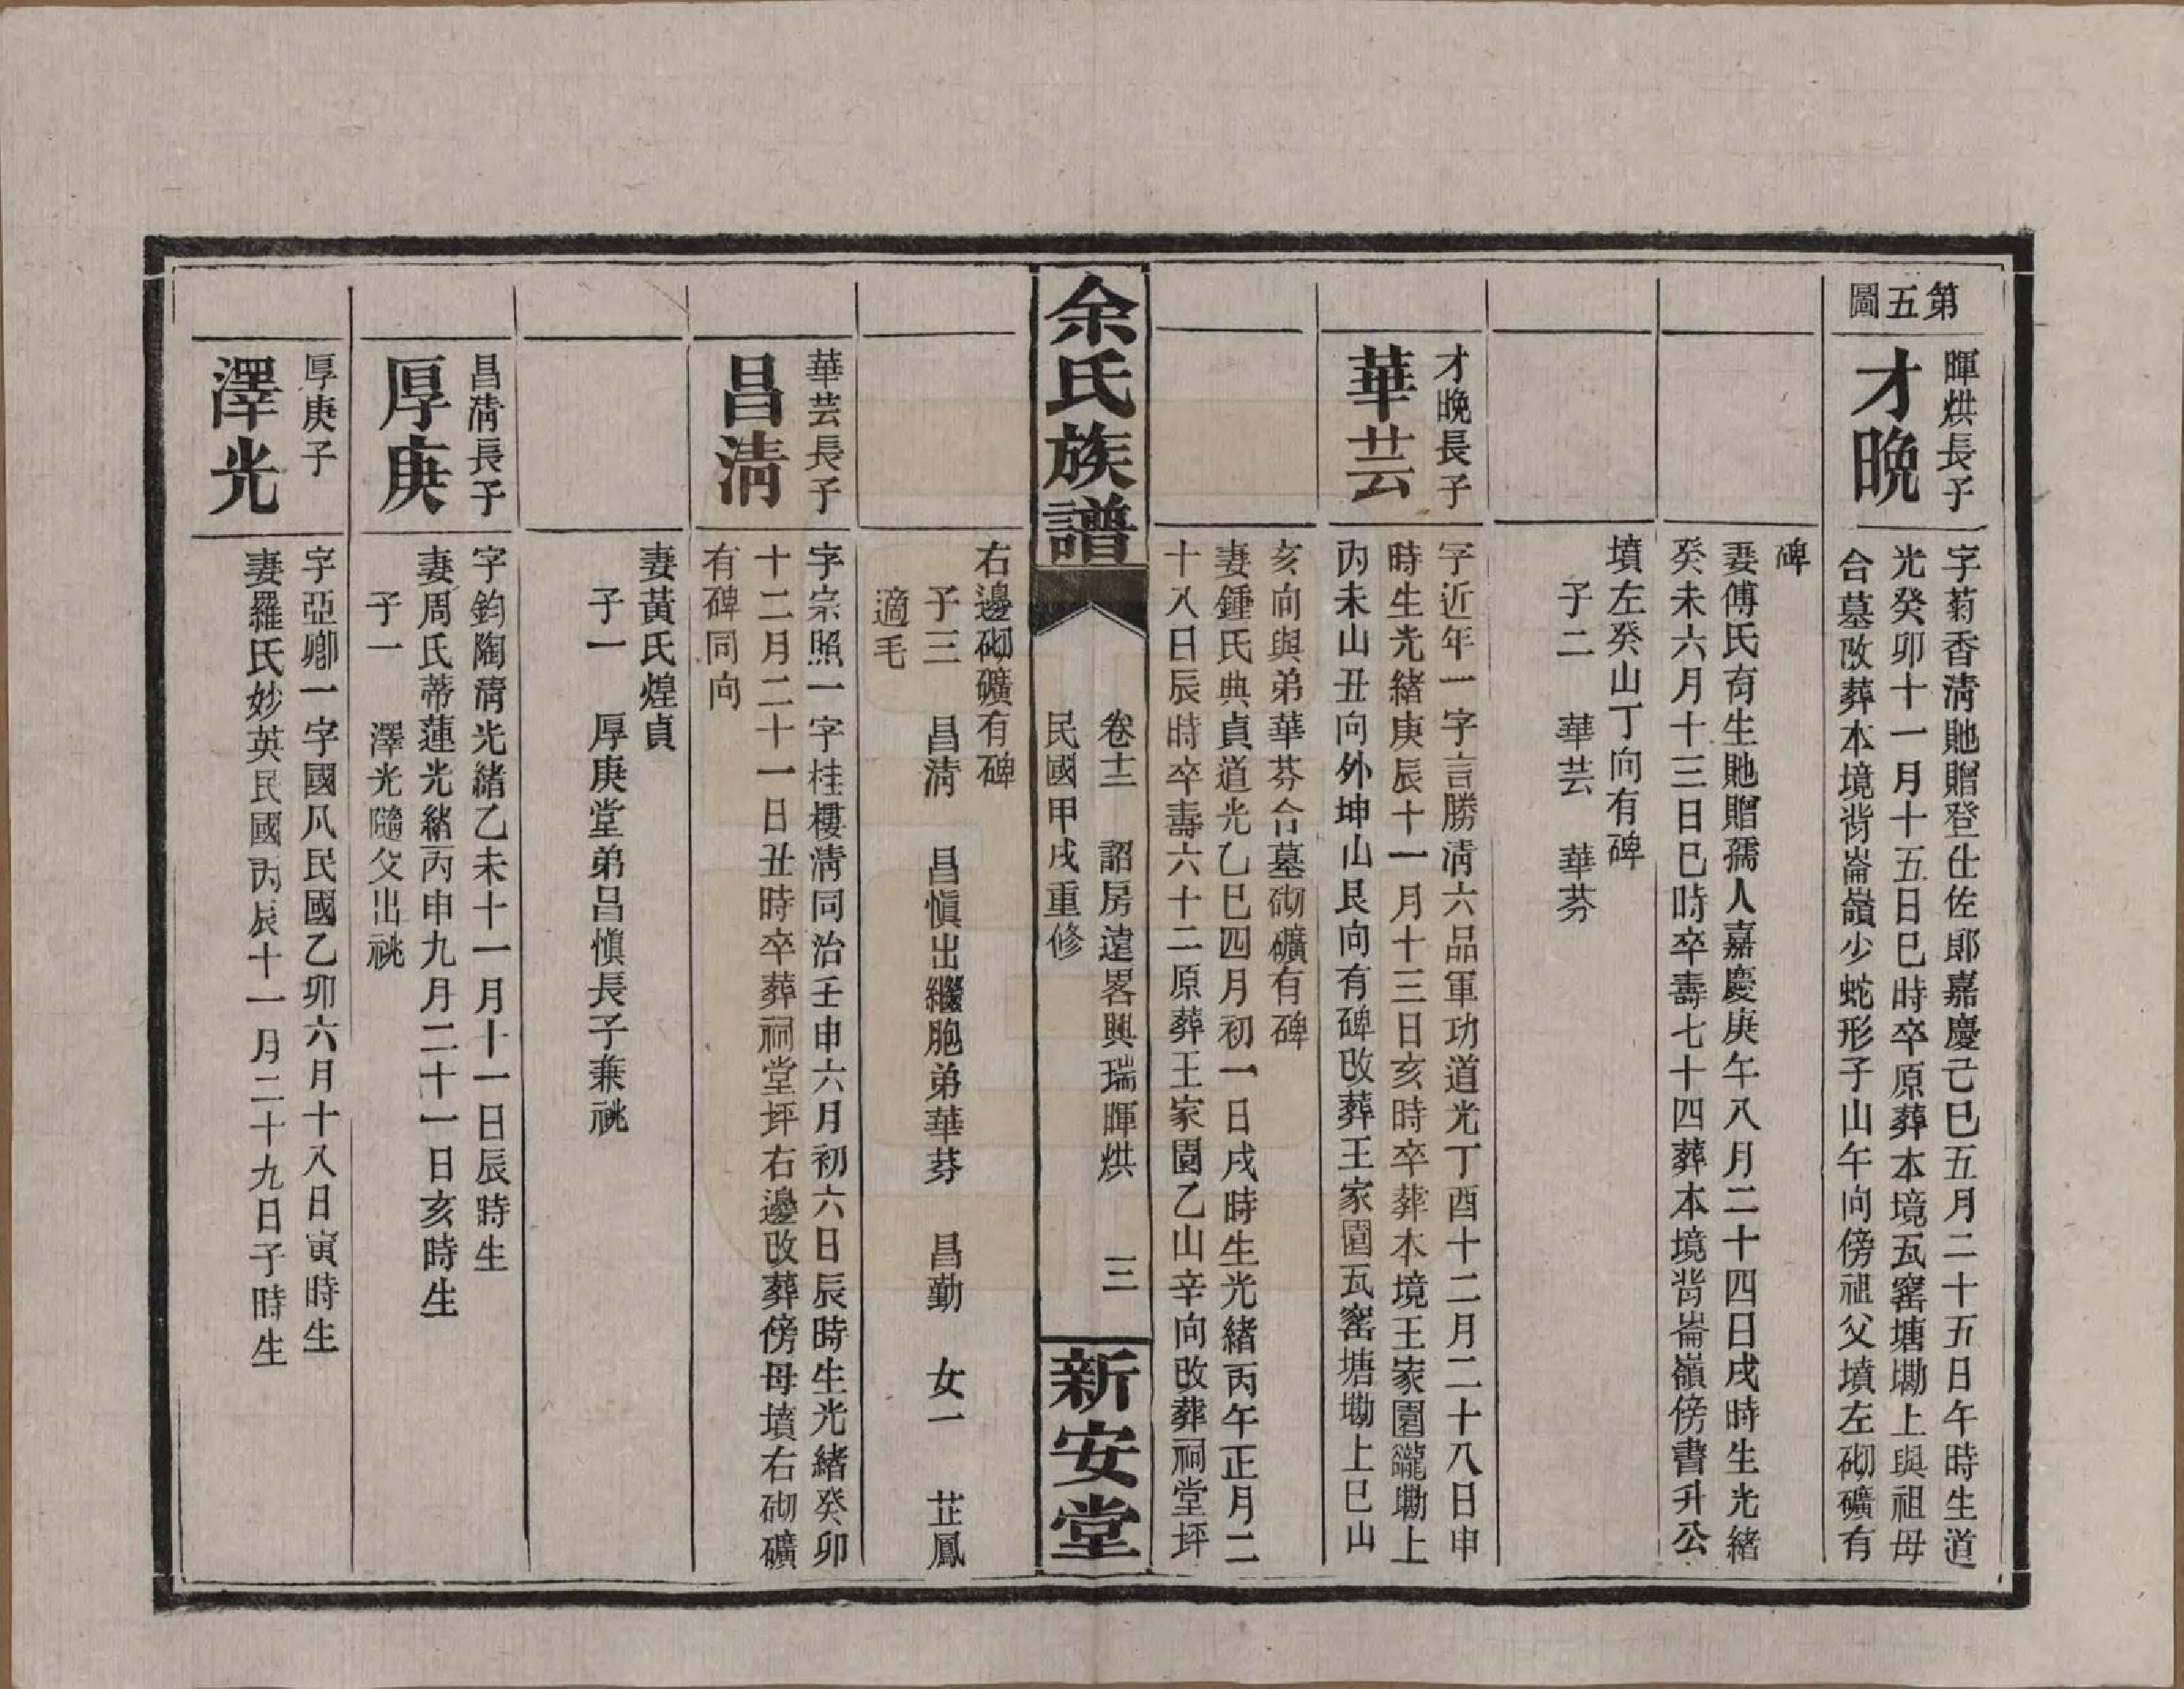 第五圖
暉烘長子
才晚
字菊香淸貤贈登仕佐郎嘉慶己巳五月二十五日午時生道
光癸卯十一月十五日巳時卒原葬本境瓦窰塘墈上與祖母
合墓改葬本境背崙嶺少蛇形子山午向傍祖父墳左砌礦有
碑
妻傅氏有生貤贈孺人嘉慶庚午八月二十四日戌時生光緒
癸未六月十三日巳時卒壽七十四葬本境背崙嶺傍書升公
墳左癸山丁向有碑
子二　華芸　華芬
才晚長子
華芸
字近年一字言勝淸六品軍功道光丁酉十二月二十八日申
時生光緒庚辰十一月十三日亥時卒葬本境王家園隴墈上
丙未山丑向外坤山艮向有碑改葬王家園瓦窰塘墈上巳山
亥向與弟華芬合墓砌礦有碑
妻鍾氏典貞道光乙巳四月初一日戌時生光緒丙午正月二
十八日辰時卒壽六十二原葬王家園乙山辛向改葬祠堂坪
余氏族譜
卷十二　詔房遠畧興瑞暉烘　三
民國甲戌重修
新安堂
右邊砌礦有碑
子三　昌淸　昌愼出繼胞弟華芬　昌勤　女一　芷鳳
適毛
華芸長子
昌淸
字宗照一字桂樓淸同治壬申六月初六日辰時生光緒癸卯
十二月二十一日丑時卒葬祠堂坪右邊改葬傍母墳右砌礦
有碑同向
妻黃氏煌貞
子一　厚庚堂弟昌愼長子兼祧
昌淸長子
厚庚
字鈞陶淸光緒乙未十一月十一日辰時生
妻周氏蒂蓮光緒丙申九月二十一日亥時生
子一　澤光隨父出祧
厚庚子
澤光
字亞卿一字國凡民國乙卯六月十八日寅時生
妻羅氏妙英民國丙辰十一月二十九日子時生